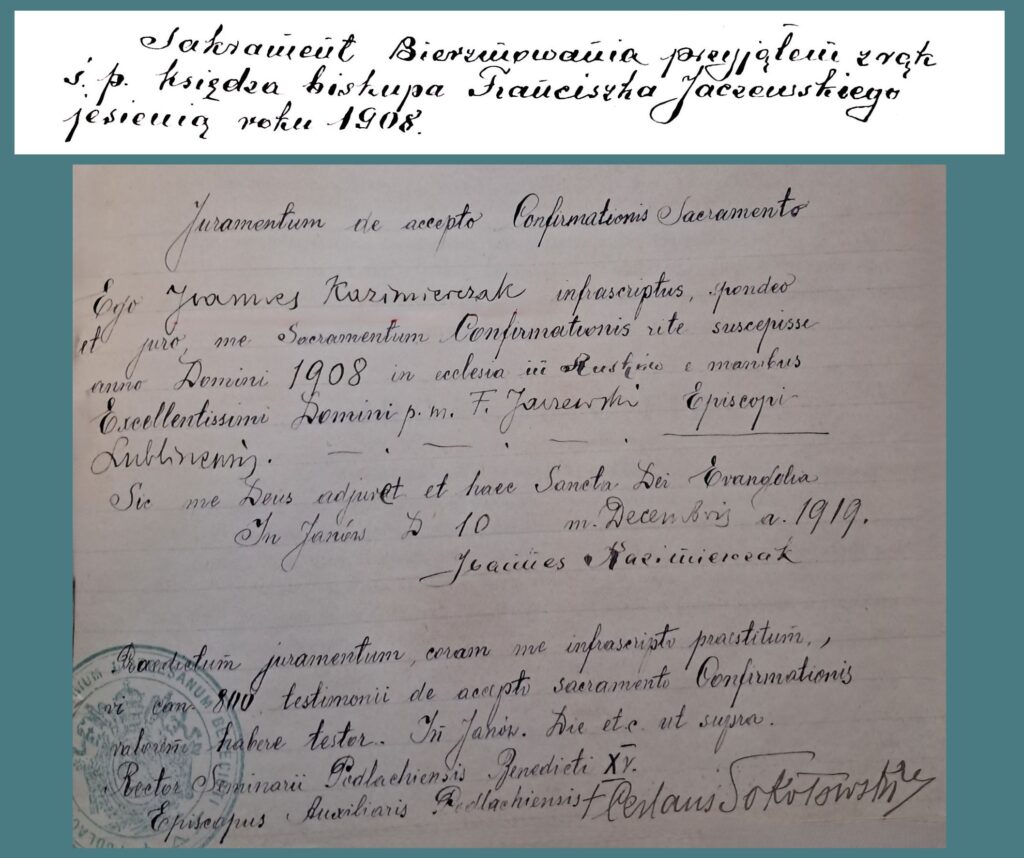 Sakrament Bierzmowania przyjąłem z rąk
ś. p. księdza biskupa Franciszka Jaczewskiego
jesienią roku 1908.
Juramentum de accepto Confirmationis Sacramento
Ego Joannes Kazimierczak infrascriptus, spondeo
et juro, me Sacramentum Confirmationis rite suscepisse
anno Domini 1908 in ecclesia in e manibus
Excellentissimi Domini p. m. F. Jaczewski Episcopi
Lublinensis.
Sic me Deus adjuvet et haec Sancta Dei Evangelia
In Janów D 10 m. Decembris a. 1919.
Joannes Kazimierczak
Praedictum juramentum, coram me infrascripto praestitum,
vi can. 800 testimonii de accepto sacramento Confirmationis
valorem habere testor. In Janów. Die etc. ut supra.
Rector Seminarii Podlachiensis Benedicti XV.
Episcopus Auxiliaris Podlachiensis † Ceslaus Sokołowski